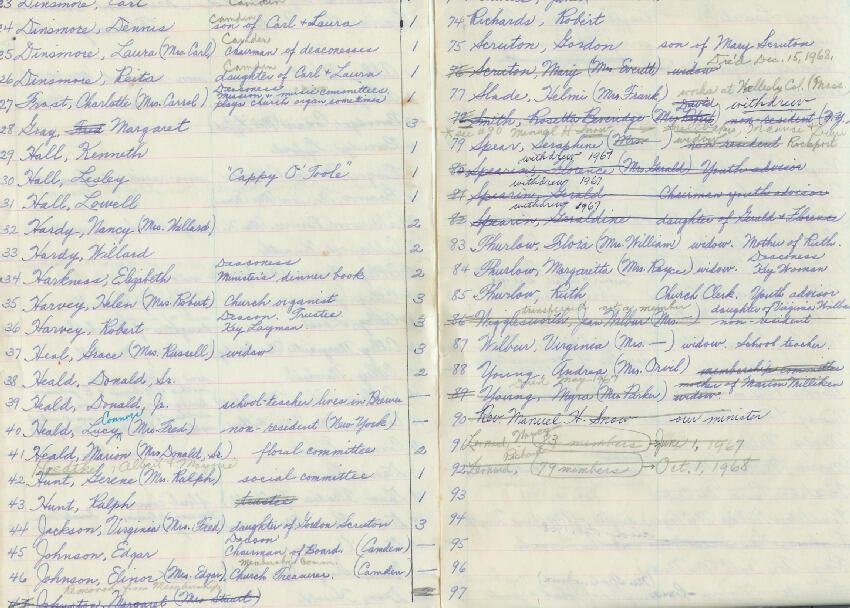 Camden
23 Dinsmore, Carl
Camden
24 Dinsmore, Dennis son of Carl & Laura 1
Camden
25 Dinsmore, Laura (Mrs. Carl) Chairman of deaconesses 1
Camden
26 Dinsmore, Reita daughter of Carl & Laura 1
Deaconess
Mission & music committees
27 Frost, Charlotte (Mrs. Carrol) plays church organ sometimes 1
28 Gray, Fred Margaret 3
29 Hall, Kenneth 1
30 Hall, Lesley "Cappy O'Toole" 1
31 Hall, Lowell 1
32 Hardy, Nancy (Mrs. Willard) 2
33 Hardy, Willard 2
Deaconess
34 Harkness, Elizabeth Minister's dinner book 2
35 Harvey, Helen (Mrs. Robert) Church organist 3
Deacon. Trustee
36 Harvey, Robert Key Layman 3
37 Heal, Grace (Mrs. Russell) widow 3
38 Heald, Donald, Sr. 2
39 Heald, Donald, Jr. school-teacher lives in Brewer —
Connors
40 Heald, Lucy (Mrs. Fred) non-resident (New York) —
41 Heald, Marion (Mrs. Donald, Sr.) floral committee 2
Albert & Marjorie
42 Hunt, Serene (Mrs. Ralph) social committee 1
43 Hunt, Ralph trustee 1
44 Jackson, Virginia (Mrs. Fred) daughter of Gordon Scruton 3
Deacon
45 Johnson, Edgar Chairman of Board. (Camden) —
Membership Comm.
46 Johnson, Elinor (Mrs. Edgar) Church Treasurer. (Camden) —
Removed from Membership
47 Johnston, Margaret (Mrs. Stuart)
74 Richards, Robert
75 Scruton, Gordon son of Mary Scruton
Died Dec. 15, 1968.
76 Scruton, Mary (Mrs. Everett) widow
77 Slade, Helmi (Mrs. Frank) works at Wellesley Col. (Mass.
David withdrew
78 Smith, Rosetta Beveridge (Mrs. non-resident
* see #90 Manual H. Snow
79 Spear, Seraphine (Mrs. ) widow non resident Rockport
withdrew 1967
80 Spearin, Florence (Mrs. Gerald) Youth advisor
withdrew 1967
81 Spearin, Gerald Chairman youth advisor
withdrew 1967
82 Spearin, Geraldine daughter of Gerald & Florence
83 Thurlow, Flora (Mrs. William) widow. Mother of Ruth.
Deaconess
84 Thurlow, Margaretta (Mrs. Royce) widow. Key Woman
85 Thurlow, Ruth Church Clerk. Youth advisor
not a member daughter of Virginia Wilbur
86 Wigglesworth, Jan Wilbur (Mrs. —) non-resident
87 Wilbur, Virginia (Mrs. —) widow. School teacher.
88 Young, Andrea (Mrs. Orvil) membership committee
mother of Marion Milliken
Died May 1967
89 Young, Myra (Mrs. Parker) widow
90 Rev. Manuel H. Snow our minister
91 Leonard, Mary 83 members → June 1, 1967
Richard
92 Leonard, 79 members → Oct. 1, 1968
93
94
95
96
97